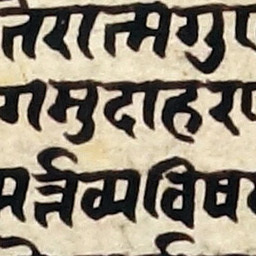 तरात्मगुण
गमुदाहरण
मर्त्तव्यविषय